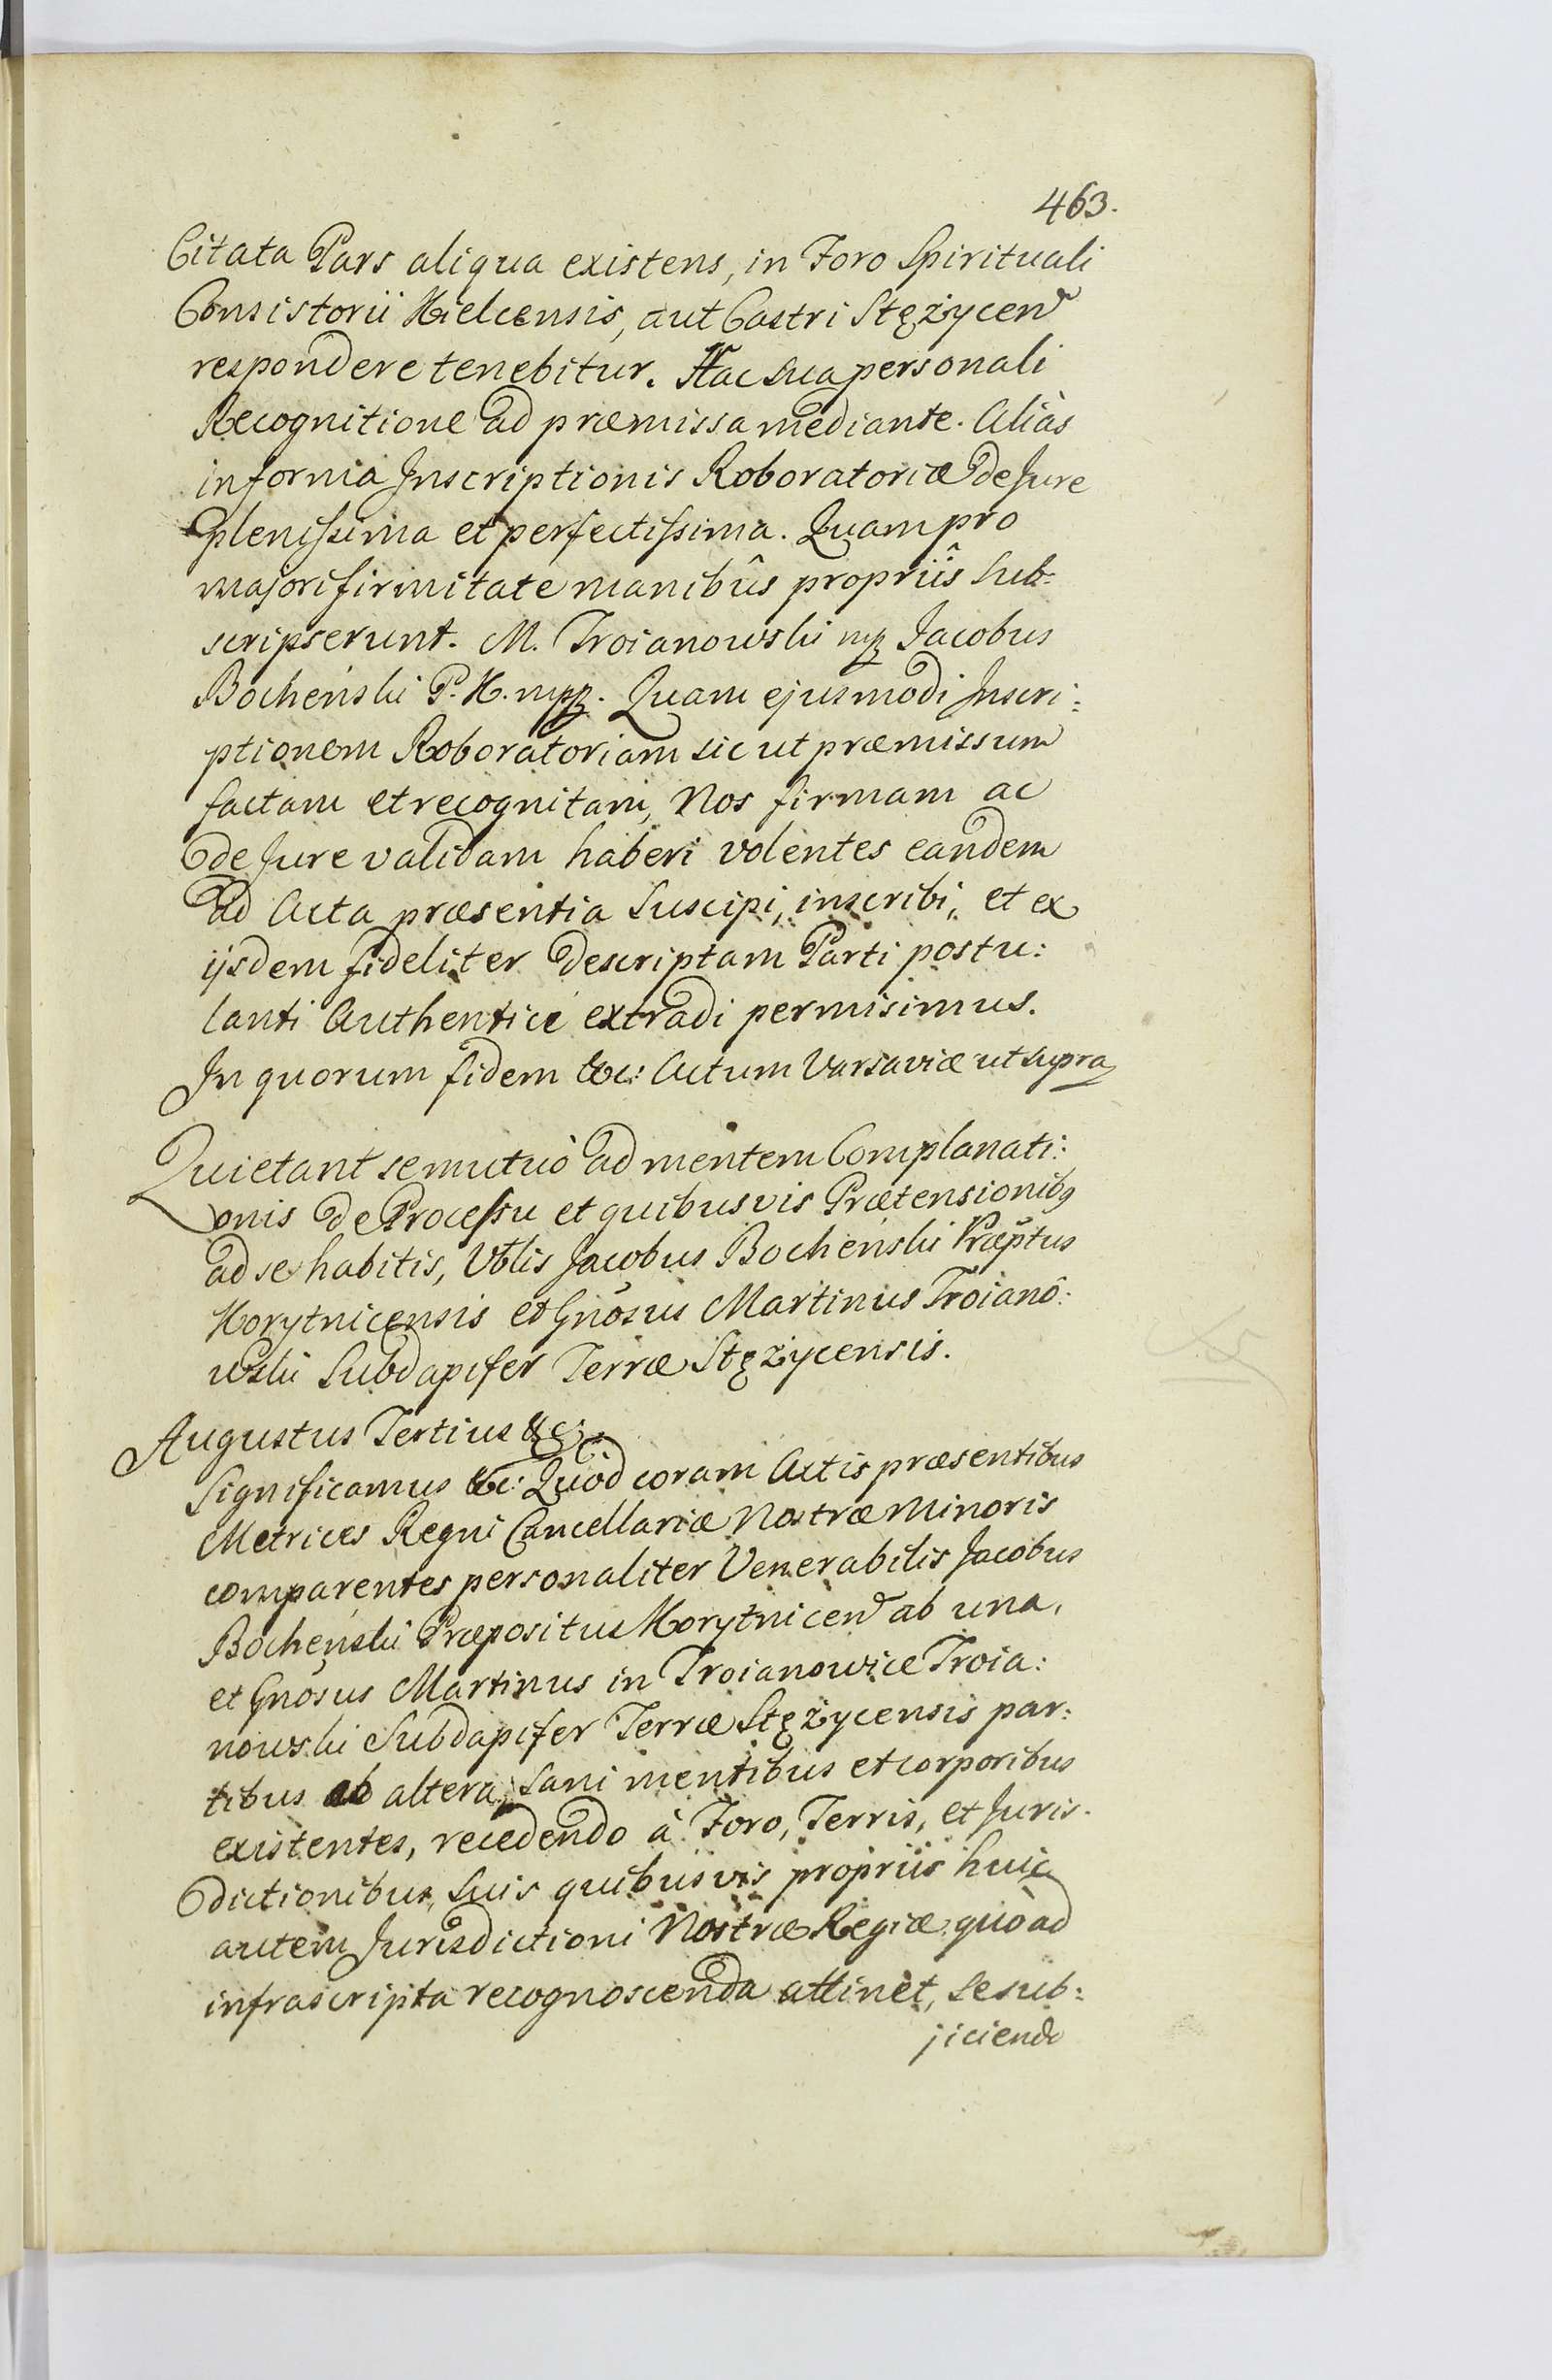 463.
Citata Pars aliqua existens, in Foro Spirituali
Consistorii Kielcensis, aut Castri Stężycen
respondere tenebitur. Hac sua personali
Recognitione ad præmissa mediante. Aliàs
in forma Inscriptionis Roboratoriæ de Jure
plenissima et perfectissima. Quam pro
majori firmitate manibûs propriîs sub-
scripserunt. M. Troianowski mp Jacobus
Bocheński P. K. mpp. Quam ejusmodi Inscri:
ptionem Roboratoriam sic ut præmissum
factam et recognitam, Nos firmam ac
de Jure validam haberi volentes eandem
ad Acta præsentia Suscipi, inscribi, et ex
ijsdem fideliter descriptam Parti postu:
lanti Authenticè extradi permisimus.
In quorum fidem &c: Actum Varsaviæ ut supra
Quietant se mutuò ad mentem Complanati:
onis de Processu et quibusvis Prætensionibq
ad se habitis, Vblis Jacobus Bocheński Præptus
Korytnicensis et Gnosus Martinus Troiano:
wski Subdapifer Terræ Stężycensis.
Augustus Tertius &c:
Significamus &c: Quòd coram Actis præsentibus
Metrices Regni Cancellariæ Nostræ Minoris
comparentes personaliter Venerabilis Jacobus
Bocheński Præpositus Korytnicen ab una,
et Gnosus Martinus in Troianowice Troia:
nowski Subdapifer Terræ Stężycensis par:
tibus ab altera, Sani mentibus et corporibus
existentes, recedendo à Foro, Terris, et Juris-
dictionibus, Suis quibusvis propriis huic
autem Jurisdictioni Nostræ Regiæ quòad
infrascripta recognoscenda attinet, se sub:
jiciendo